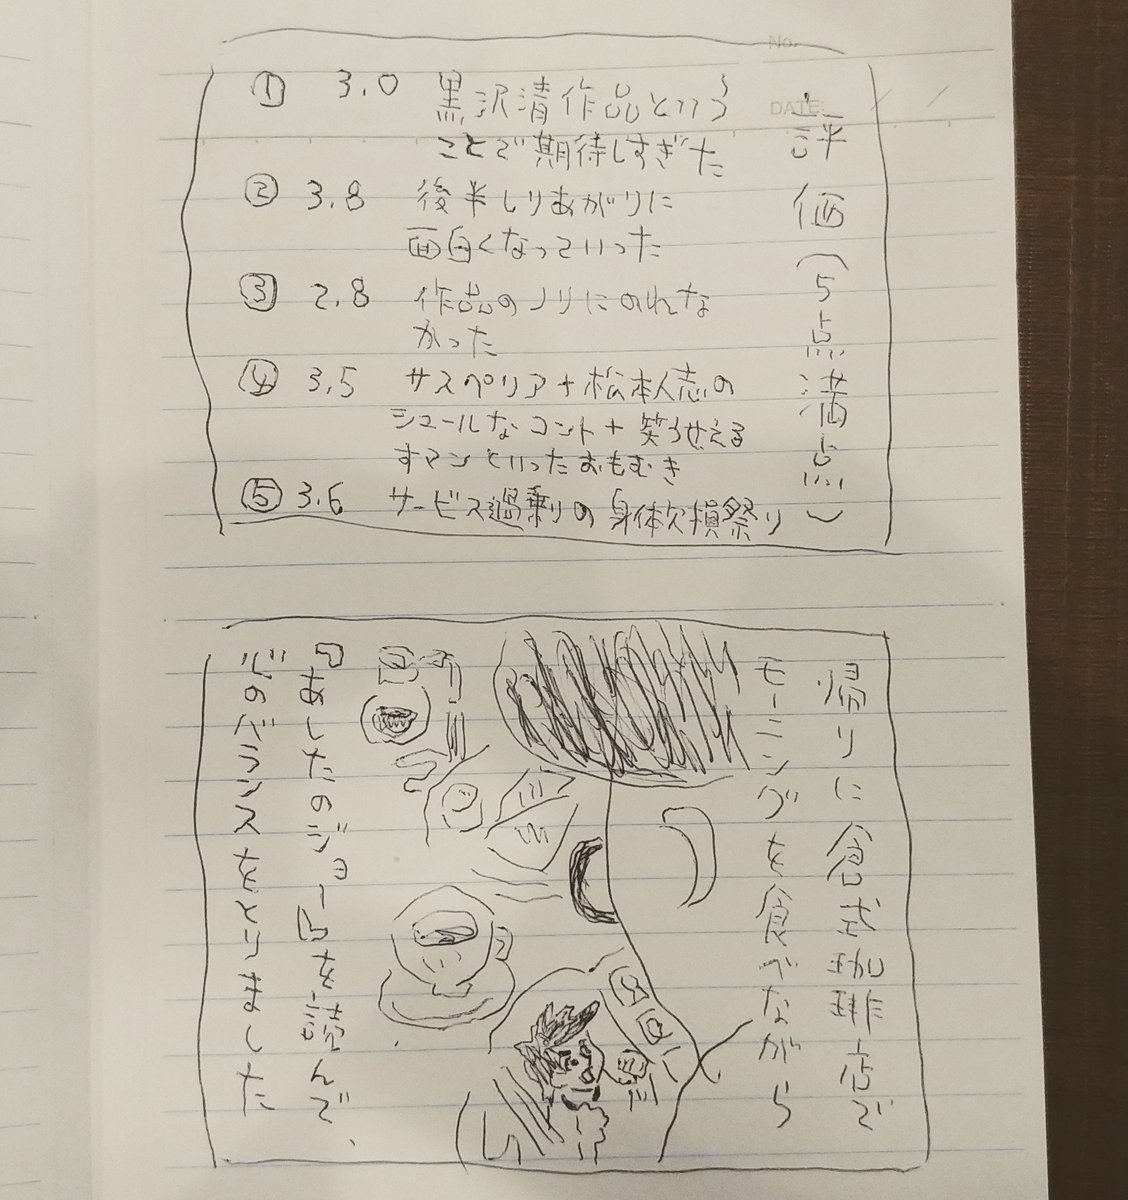 No.
DATE
評価(5点満点)
① 3.0 黒沢清作品という
ことで期待しすぎた
② 3.8 後半しりあがりに
面白くなっていった
③ 2.8 作品のノリにのれな
かった
④ 3.5 サスペリア+松本人志の
シュールなコント+笑うせえる
すマンといったおもむき
⑤ 3.6 サービス過剰の身体欠損祭り
帰りに倉式珈琲店で
モーニングを食べながら
『あしたのジョー』を読んで、
心のバランスをとりました